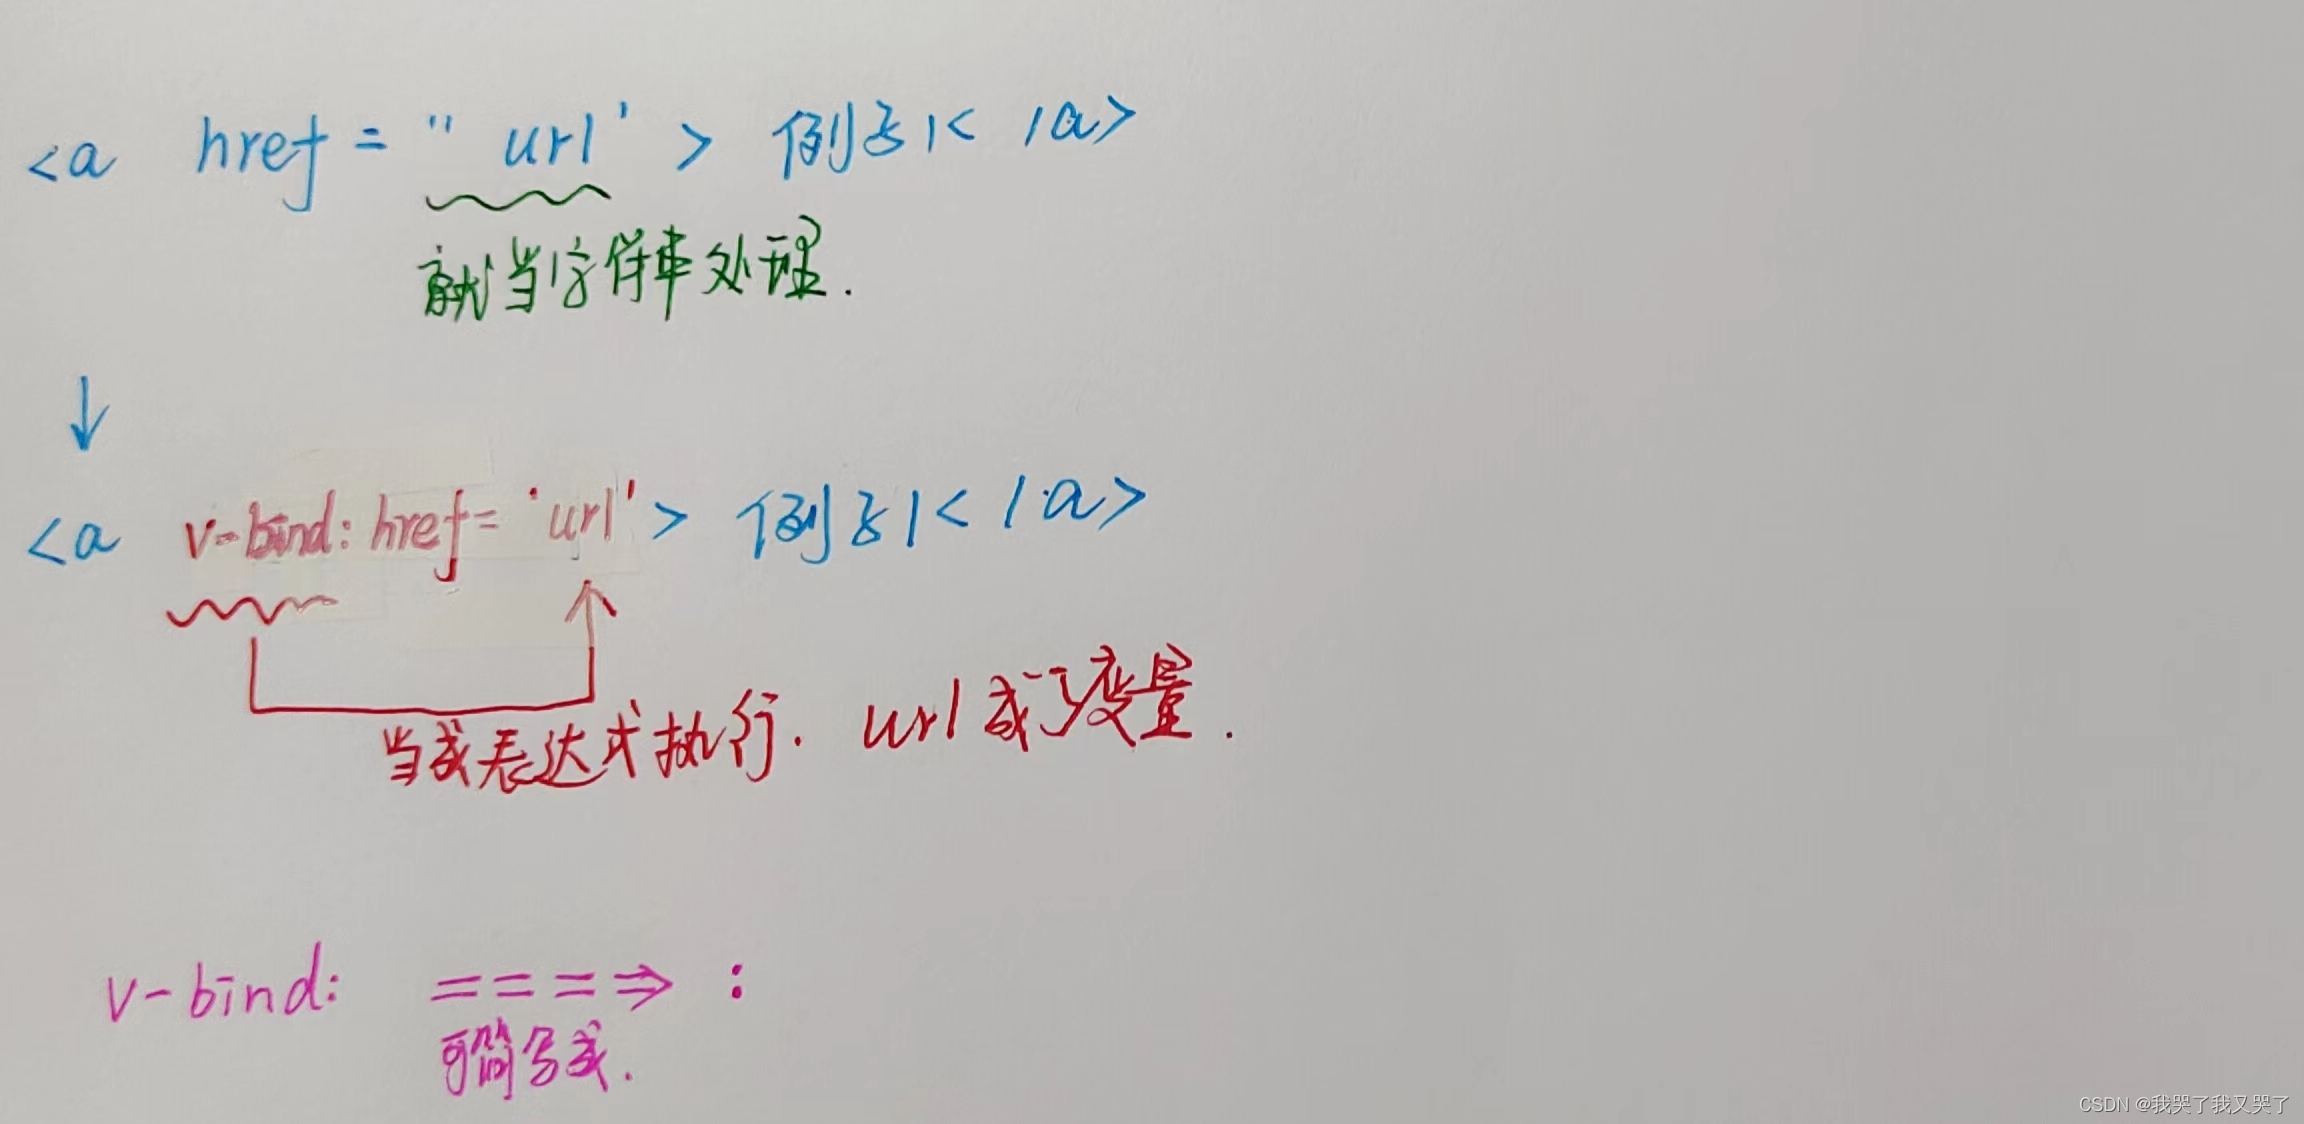 <a href = " url' > 例子1< /a>
就当字符串处理.
<a v-bind: href = 'url' > 例子1< /a>
当成表达式执行. url成了变量.
v-bind: ====⇒ :
可简写成.
CSDN @我哭了我又哭了